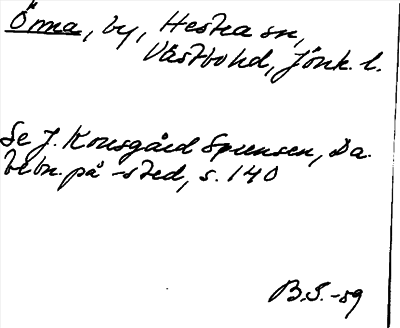 Ölma, by, Hestra sn,
Västbo hd, Jönk. l.
Se J. Kousgård Sørensen, Da.
bebn. på -sted, s. 140
B.S. -59